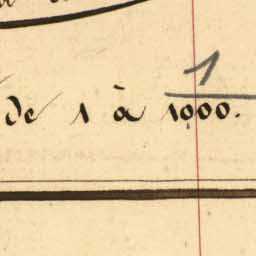 1
de 1 à 1000.